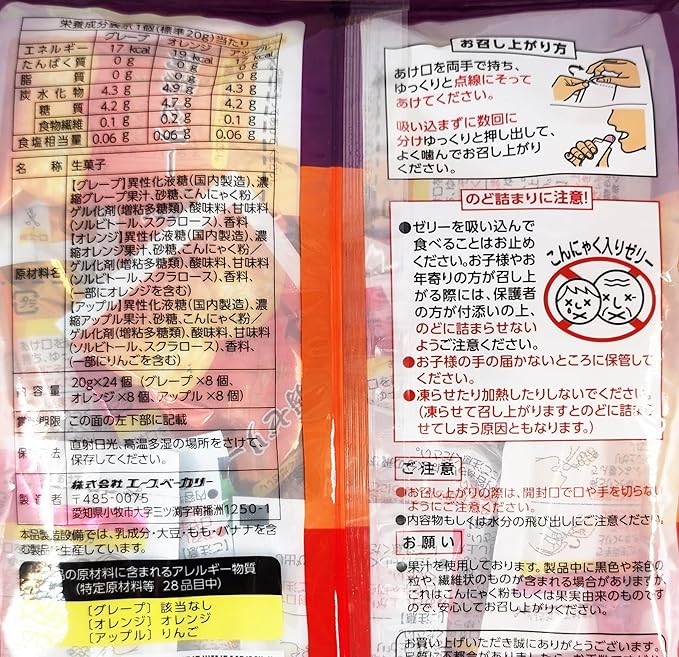 栄養成分表示1個(標準20g)当たり
グレープ オレンジ アップル
エネルギー 17 kcal 19 kcal 17 kcal
たんぱく質 0 g 0 g 0 g
脂質 0 g 0 g 0 g
炭水化物 4.3 g 4.9 g 4.3 g
糖質 4.2 g 4.7 g 4.2 g
食物繊維 0.1 g 0.2 g 0.1 g
食塩相当量 0.06 g 0.06 g 0.06 g
名称 生菓子
原材料名
【グレープ】異性化液糖(国内製造)、濃
縮グレープ果汁、砂糖、こんにゃく粉/
ゲル化剤(増粘多糖類)、酸味料、甘味料
(ソルビトール、スクラロース)、香料
【オレンジ】異性化液糖(国内製造)、濃
縮オレンジ果汁、砂糖、こんにゃく粉/
ゲル化剤(増粘多糖類)、酸味料、甘味料
(ソルビトール、スクラロース)、香料、
(一部にオレンジを含む)
【アップル】異性化液糖(国内製造)、濃
縮アップル果汁、砂糖、こんにゃく粉/
ゲル化剤(増粘多糖類)、酸味料、甘味料
(ソルビトール、スクラロース)、香料、
(一部にりんごを含む)
内容量 20g×24個 (グレープ×8個、
オレンジ×8個、アップル×8個)
賞味期限 この面の左下部に記載
保存方法 直射日光、高温多湿の場所をさけて、
保存してください。
製造者 株式会社 エースベーカリー
〒485-0075
愛知県小牧市大字三ツ渕字南播洲1250-1
本品製造設備では、乳成分・大豆・もも・バナナを含
む製品を生産しています。
の原材料に含まれるアレルギー物質
(特定原材料等 28品目中)
[グレープ] 該当なし
[オレンジ] オレンジ
[アップル] りんご
お召し上がり方
あけ口を両手で持ち、
ゆっくりと点線にそって
あけてください。
吸い込まずに数回に
分けゆっくりと押し出して、
よく噛んでお召し上がり
ください。
のど詰まりに注意!
●ゼリーを吸い込んで
食べることはお止め
ください。お子様やお
年寄りの方が召し上
がる際には、保護者
の方が付添いの上、
のどに詰まらせない
ようご注意ください。
こんにゃく入りゼリー
●お子様の手の届かないところに保管して
ください。
●凍らせたり加熱したりしないでください。
(凍らせて召し上がりますとのどに詰ま
らせてしまう原因ともなります。)
ご注意
●お召し上がりの際は、開封口で口や手を切らない
ようにご注意ください。
●内容物もしくは水分の飛び出しにご注意ください。
お願い
●果汁を使用しております。製品中に黒色や茶色の
粒や、繊維状のものが含まれる場合がありますが、
これはこんにゃく粉もしくは果実由来のものです
ので、安心してお召し上がりください。
お買い上げいただき誠にありがとうございます。